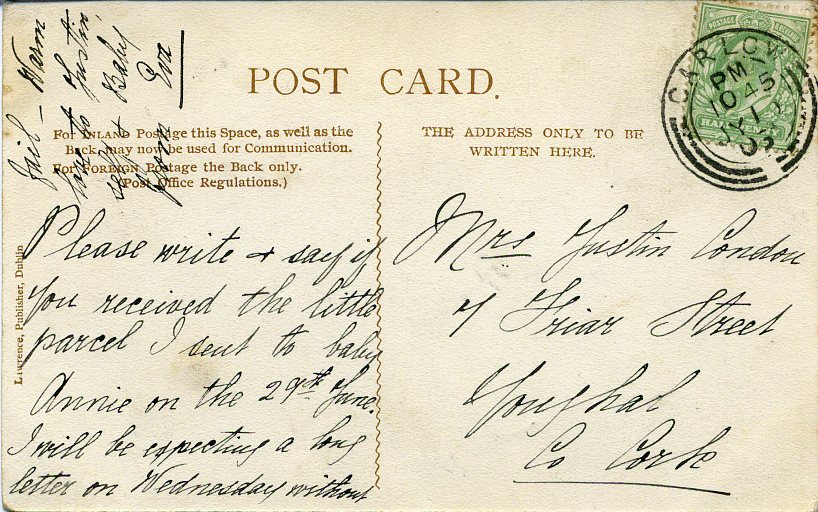 POST CARD.
For INLAND Postage this Space, as well as the
Back, may now be used for Communication.
For FOREIGN Postage the Back only.
(Post Office Regulations.)
THE ADDRESS ONLY TO BE
WRITTEN HERE.
CARLOW
PM
10 45
JY 1
POSTAGE
HALFPENNY
Lawrence, Publisher, Dublin
Please write & say if
you received the little
parcel I sent to baby
Annie on the 29th June.
I will be expecting a long
letter on Wednesday without
fail – Warm
love to Justin
self & Baby
from Eva
Mrs Justin Condon
7 Friar Street
Youghal
Co Cork